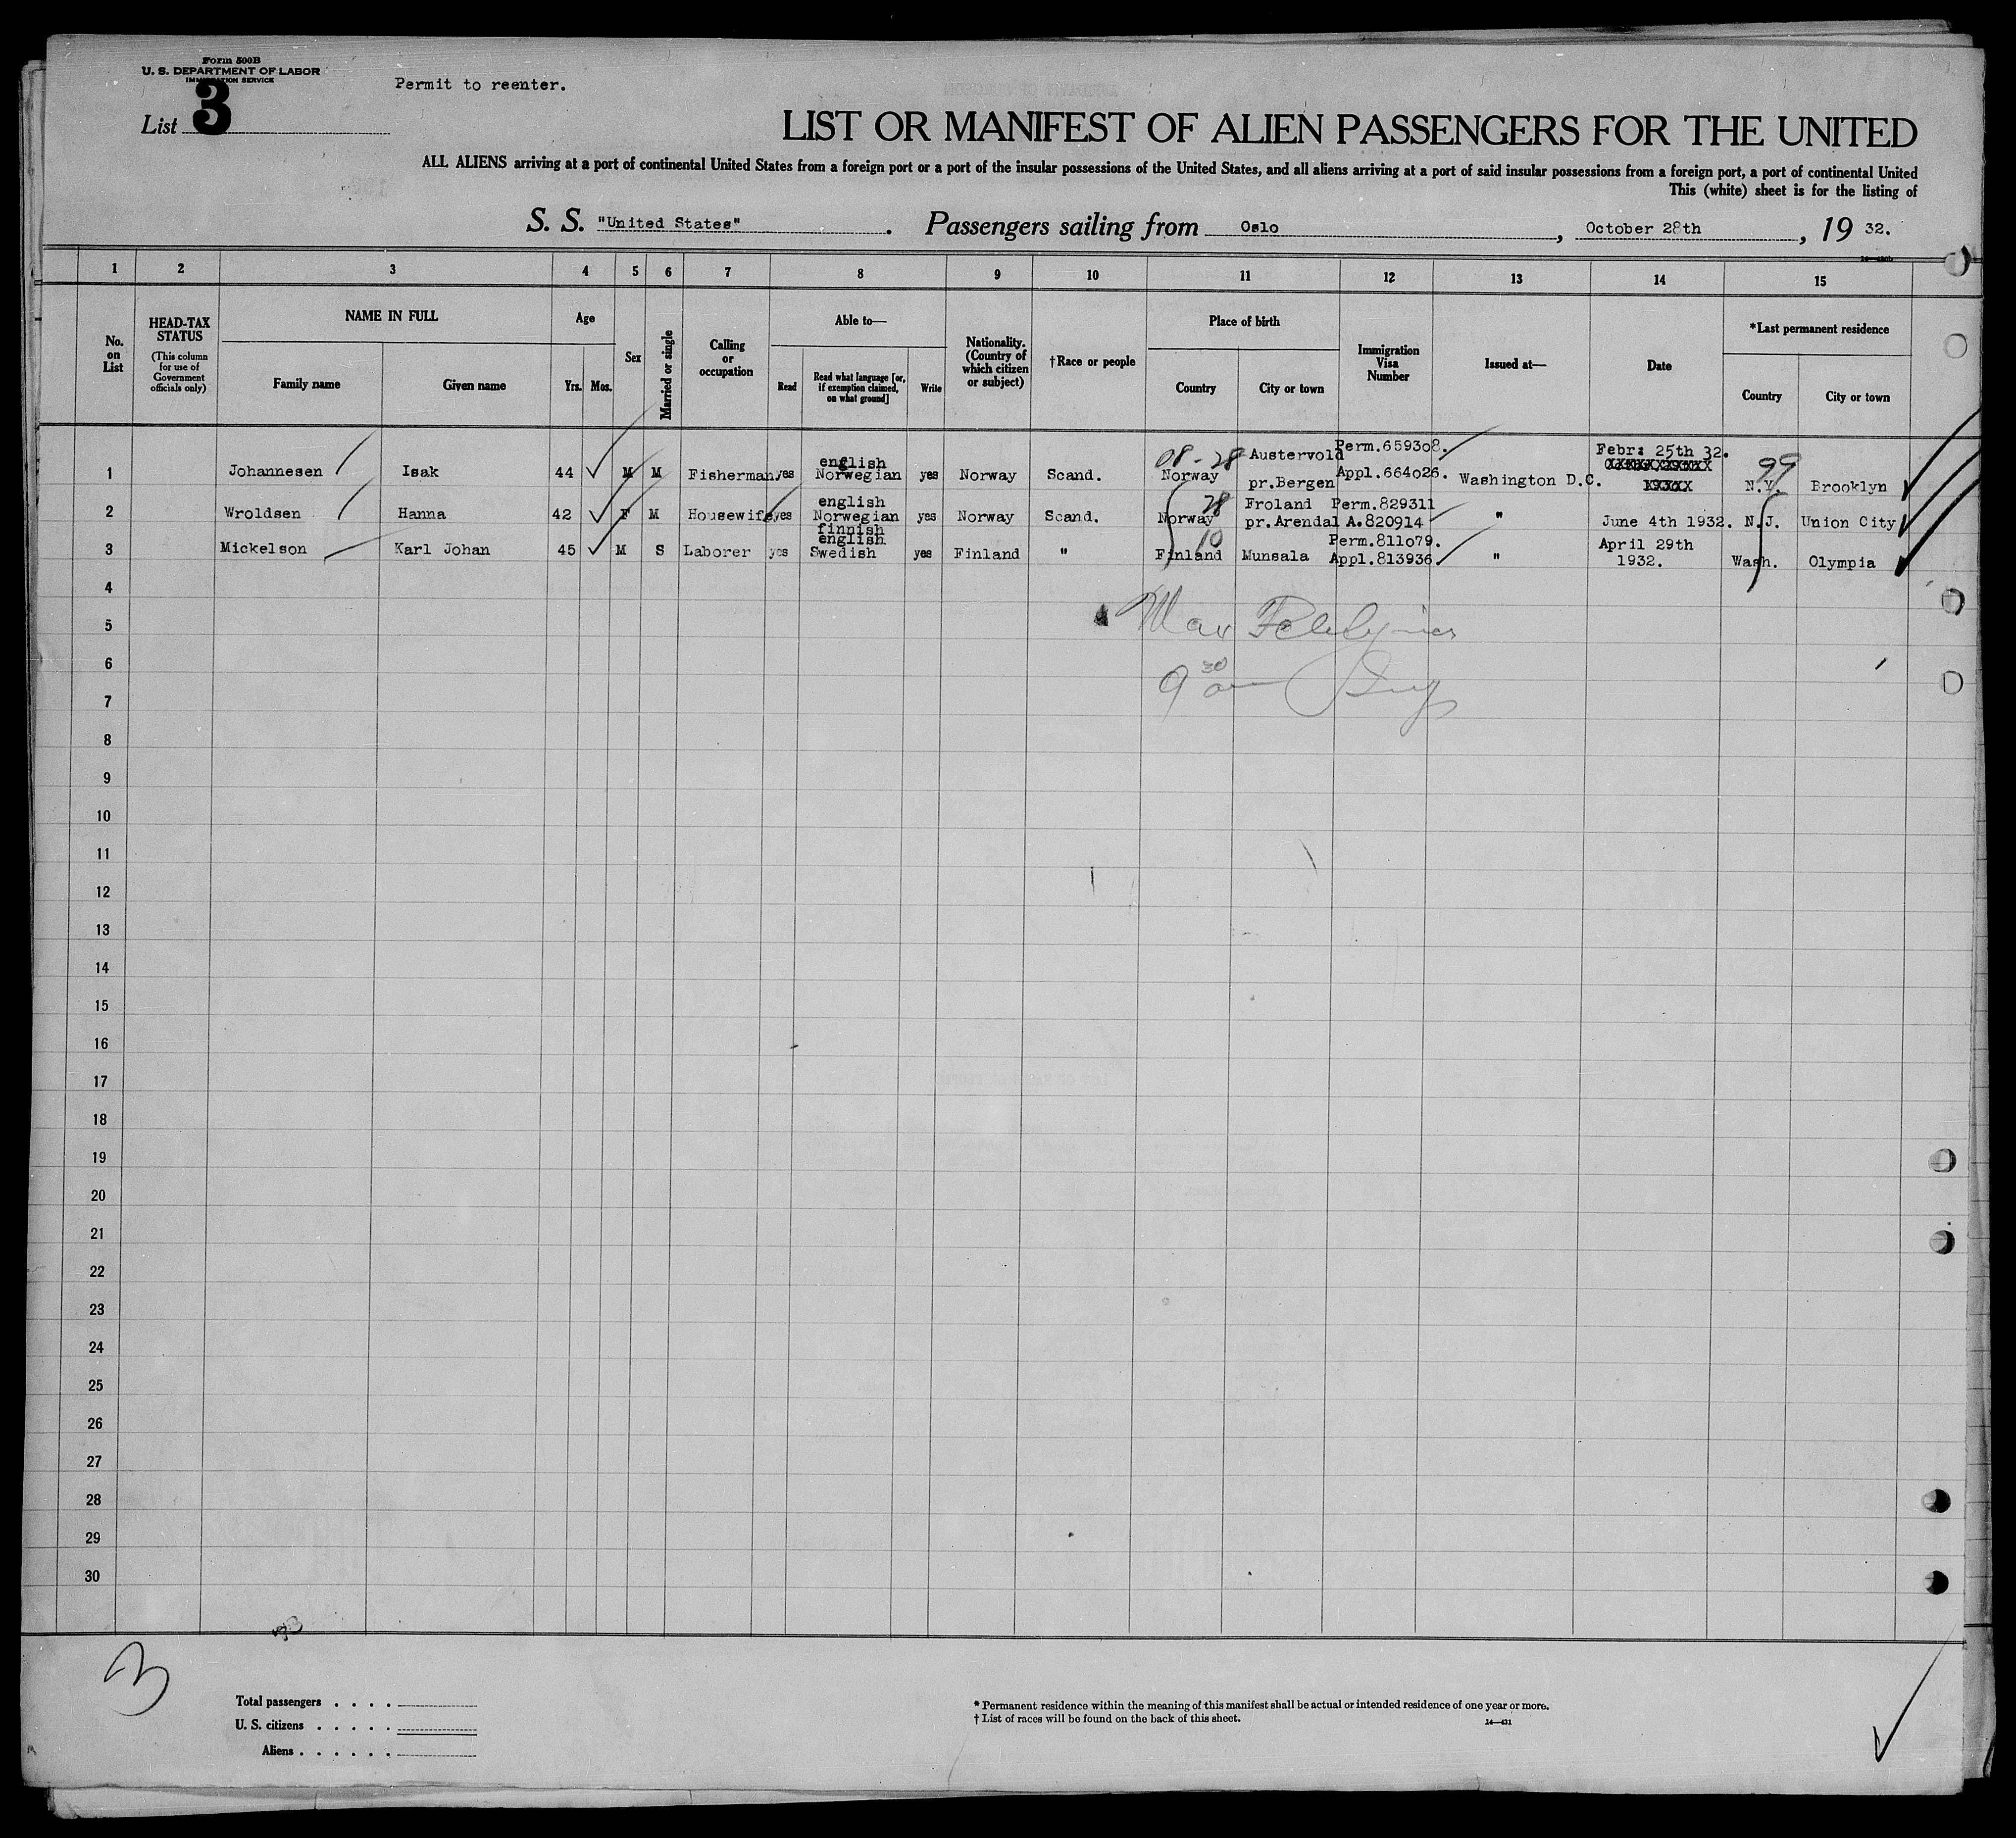 Form 500B
U. S. DEPARTMENT OF LABOR
IMMIGRATION SERVICE
Permit to reenter.
List 3
LIST OR MANIFEST OF ALIEN PASSENGERS FOR THE UNITED
ALL ALIENS arriving at a port of continental United States from a foreign port or a port of the insular possessions of the United States, and all aliens arriving at a port of said insular possessions from a foreign port, a port of continental United
This (white) sheet is for the listing of
S. S. "United States". Passengers sailing from Oslo, October 28th, 19 32.
1 2 3 4 5 6 7 8 9 10 11 12 13 14 15
No. on List
HEAD-TAX STATUS
(This column for use of Government officials only)
NAME IN FULL
Family name
Given name
Age
Yrs. Mos.
Sex
Married or single
Calling or occupation
Able to—
Read
Read what language [or, if exemption claimed, on what ground]
Write
Nationality. (Country of which citizen or subject)
†Race or people
Place of birth
Country
City or town
Immigration Visa Number
Issued at—
Date
*Last permanent residence
Country
City or town
1 Johannesen Isak 44 M M Fisherman. yes english Norwegian yes Norway Scand. 08-28 Norway Austervold pr.Bergen Perm.659308. Appl.664026. Washington D.C. Febr: 25th 32. 99 N.Y. Brooklyn
2 Wroldsen Hanna 42 F M Housewife yes english Norwegian yes Norway Scand. 28 Norway Froland pr. Arendal Perm.829311 A.820914 " June 4th 1932. N.J. Union City
3 Mickelson Karl Johan 45 M S Laborer yes finnish english Swedish yes Finland " 10 Finland Munsala Perm.811079. Appl.813936. " April 29th 1932. Wash. Olympia
4
5 Max
6
9 30
7
8
9
10
11
12
13
14
15
16
17
18
19
20
21
22
23
24
25
26
27
28
29
30
3
Total passengers . . . .
U. S. citizens . . . . .
Aliens . . . . . .
* Permanent residence within the meaning of this manifest shall be actual or intended residence of one year or more.
† List of races will be found on the back of this sheet.
14—431